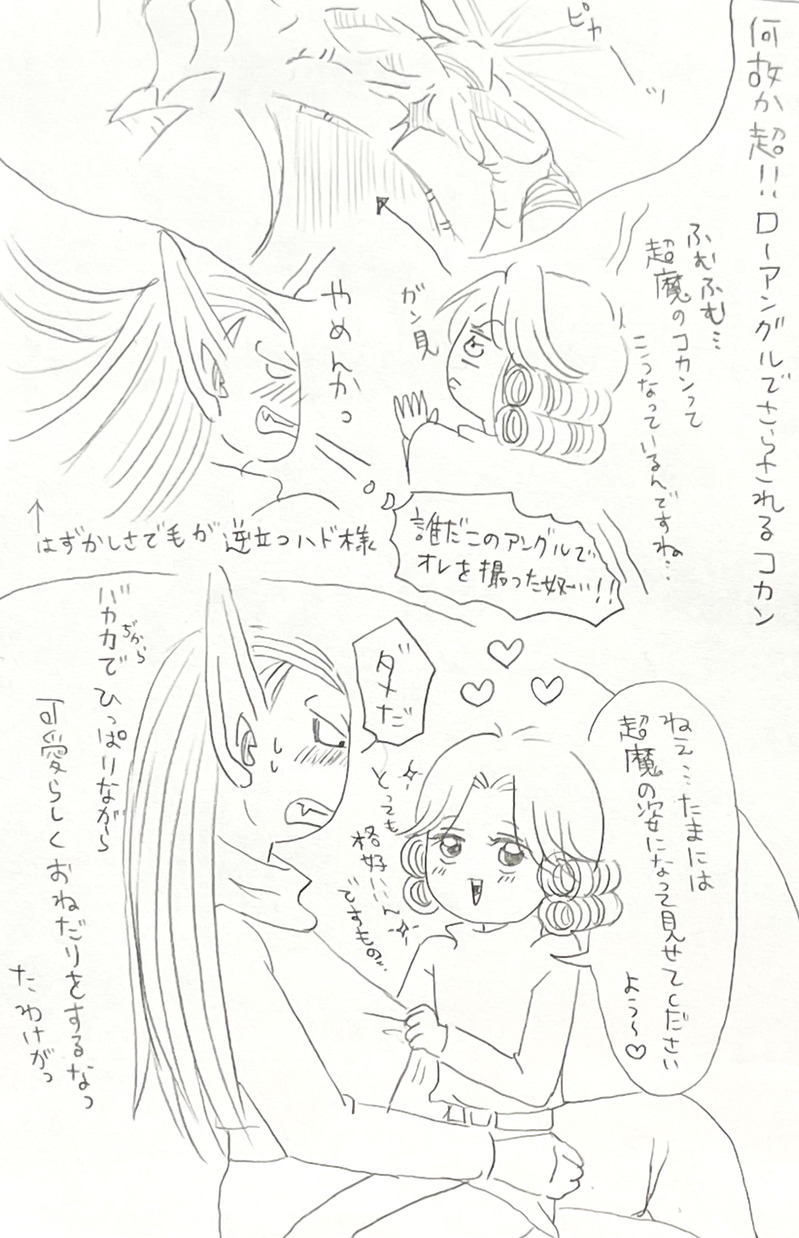 何故か超!!ローアングルでさらされるコカン
ピカ
ッ
ふむふむ…
超魔のコカンって
こうなっているんですね…
ガン見
やめんかっ
誰だこのアングルで
オレを撮った奴…!!
↑
はずかしさで毛が逆立つハド様
ねえ…たまには
超魔の姿になって見せてください
よう〜♡
ダメだ
とっても
格好いいん
ですもの
バカ力で
ぢから
ひっぱりながら
可愛らしくおねだりをするなっ
たわけがっ